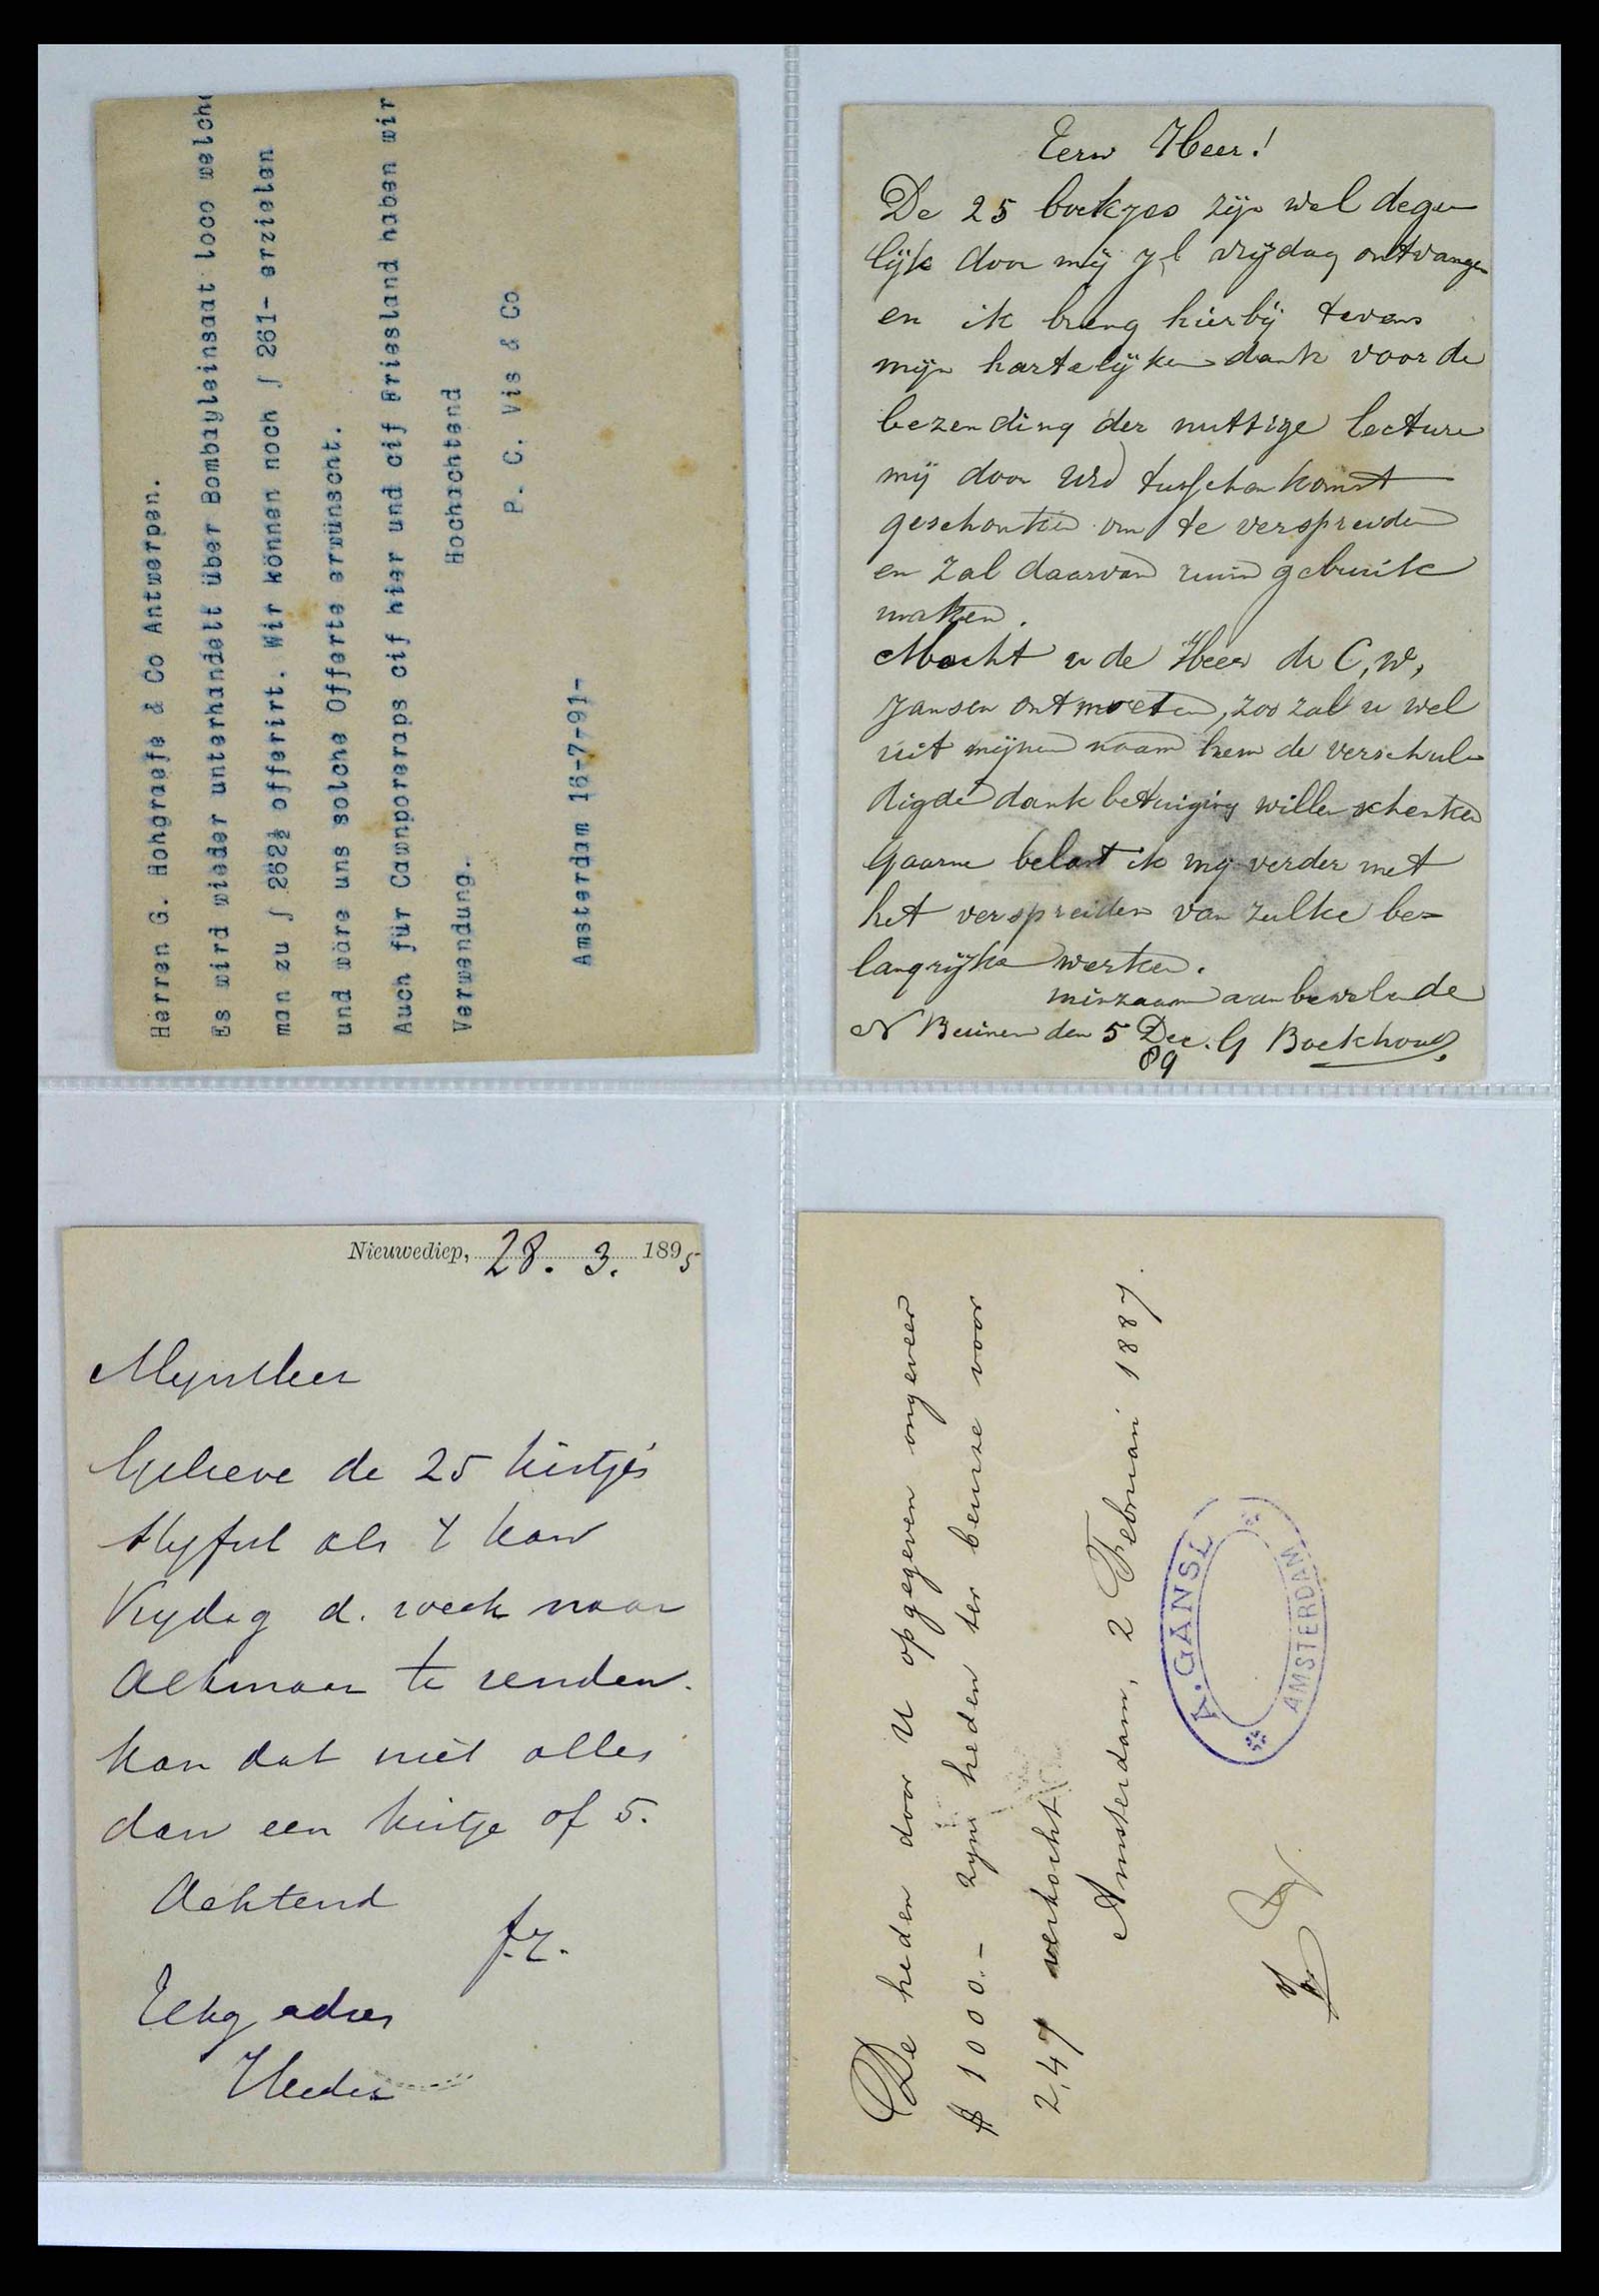 Herren G. Hohgraefe & Co Antwerpen.
Es wird wieder unterhandelt über Bombayleinsaat loco welche
man zu ƒ 262½ offerirt. Wir können noch ƒ 261- erzielen
und wäre uns solche Offerte erwünscht.
Auch für Cawnporeraps cif hier und cif Friesland haben wir
Verwendung. Hochachtend
P. C. Vis & Co
Amsterdam 16-7-91-
Eerw Heer!
De 25 boekjes zijn wel dege
lijk door mij j,l vrijdag ontvangen
en ik breng hierbij tevens
mijn hartelijken dank voor de
bezending der nuttige lectuur
mij door tusschenkomst
geschonken om te verspreiden
en zal daarvan ruim gebruik
maken.
Mocht u de Heer dr C, W,
Jansen ontmoeten, zoo zal u wel
uit mijnen naam hem de verschul
digde dankbetuiging willen schenken
gaarne belast ik mij verder met
het verspreiden van zulke be=
langrijke werken.
minzaam aanbevelende
N Beuinen den 5 Dec. G Boekhoud
89
Nieuwediep, 28. 3. 1895
Mynheer
Gelieve de 25 kistjes
als 't kan
Vrydag d. week naar
Alkmaar te zenden.
kan dat niet alles
dan een kistje of 5.
Achtend
fr.
adres
Helder
De heden door U opgegeven ongeveer
$ 1000.- zyn heden ter beurze voor
2,47 verkocht
Amsterdam, 2 Februari 1887.
A. GANSL
AMSTERDAM